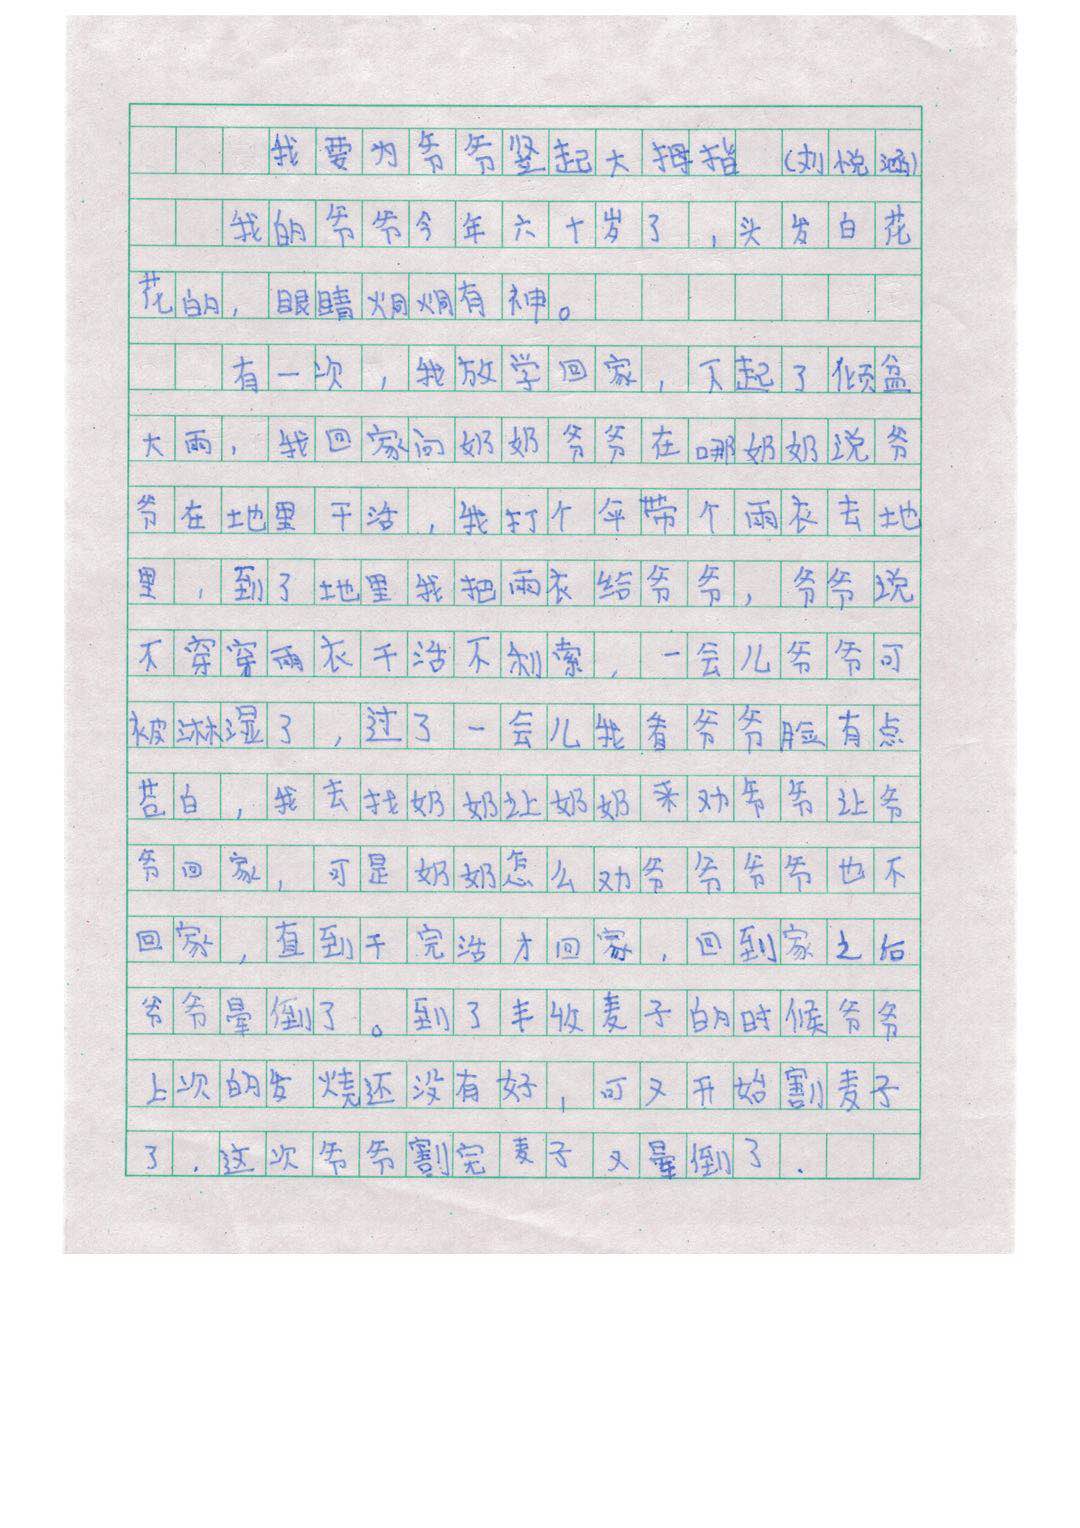 我要为爷爷竖起大拇指 (刘悦涵)
我的爷爷今年六十岁了,头发白花
花的,眼睛炯炯有神。
有一次,我放学回家,下起了倾盆
大雨,我回家问奶奶爷爷在哪奶奶说爷
爷在地里干活,我打个伞带个雨衣去地
里,到了地里我把雨衣给爷爷,爷爷说
不穿穿雨衣干活不利索,一会儿爷爷可
被淋湿了,过了一会儿我看爷爷脸有点
苍白,我去找奶奶让奶奶来劝爷爷让爷
爷回家,可是奶奶怎么劝爷爷爷爷也不
回家,直到干完活才回家,回到家之后
爷爷晕倒了。到了丰收麦子的时候爷爷
上次的发烧还没有好,可又开始割麦子
了.这次爷爷割完麦子又晕倒了.